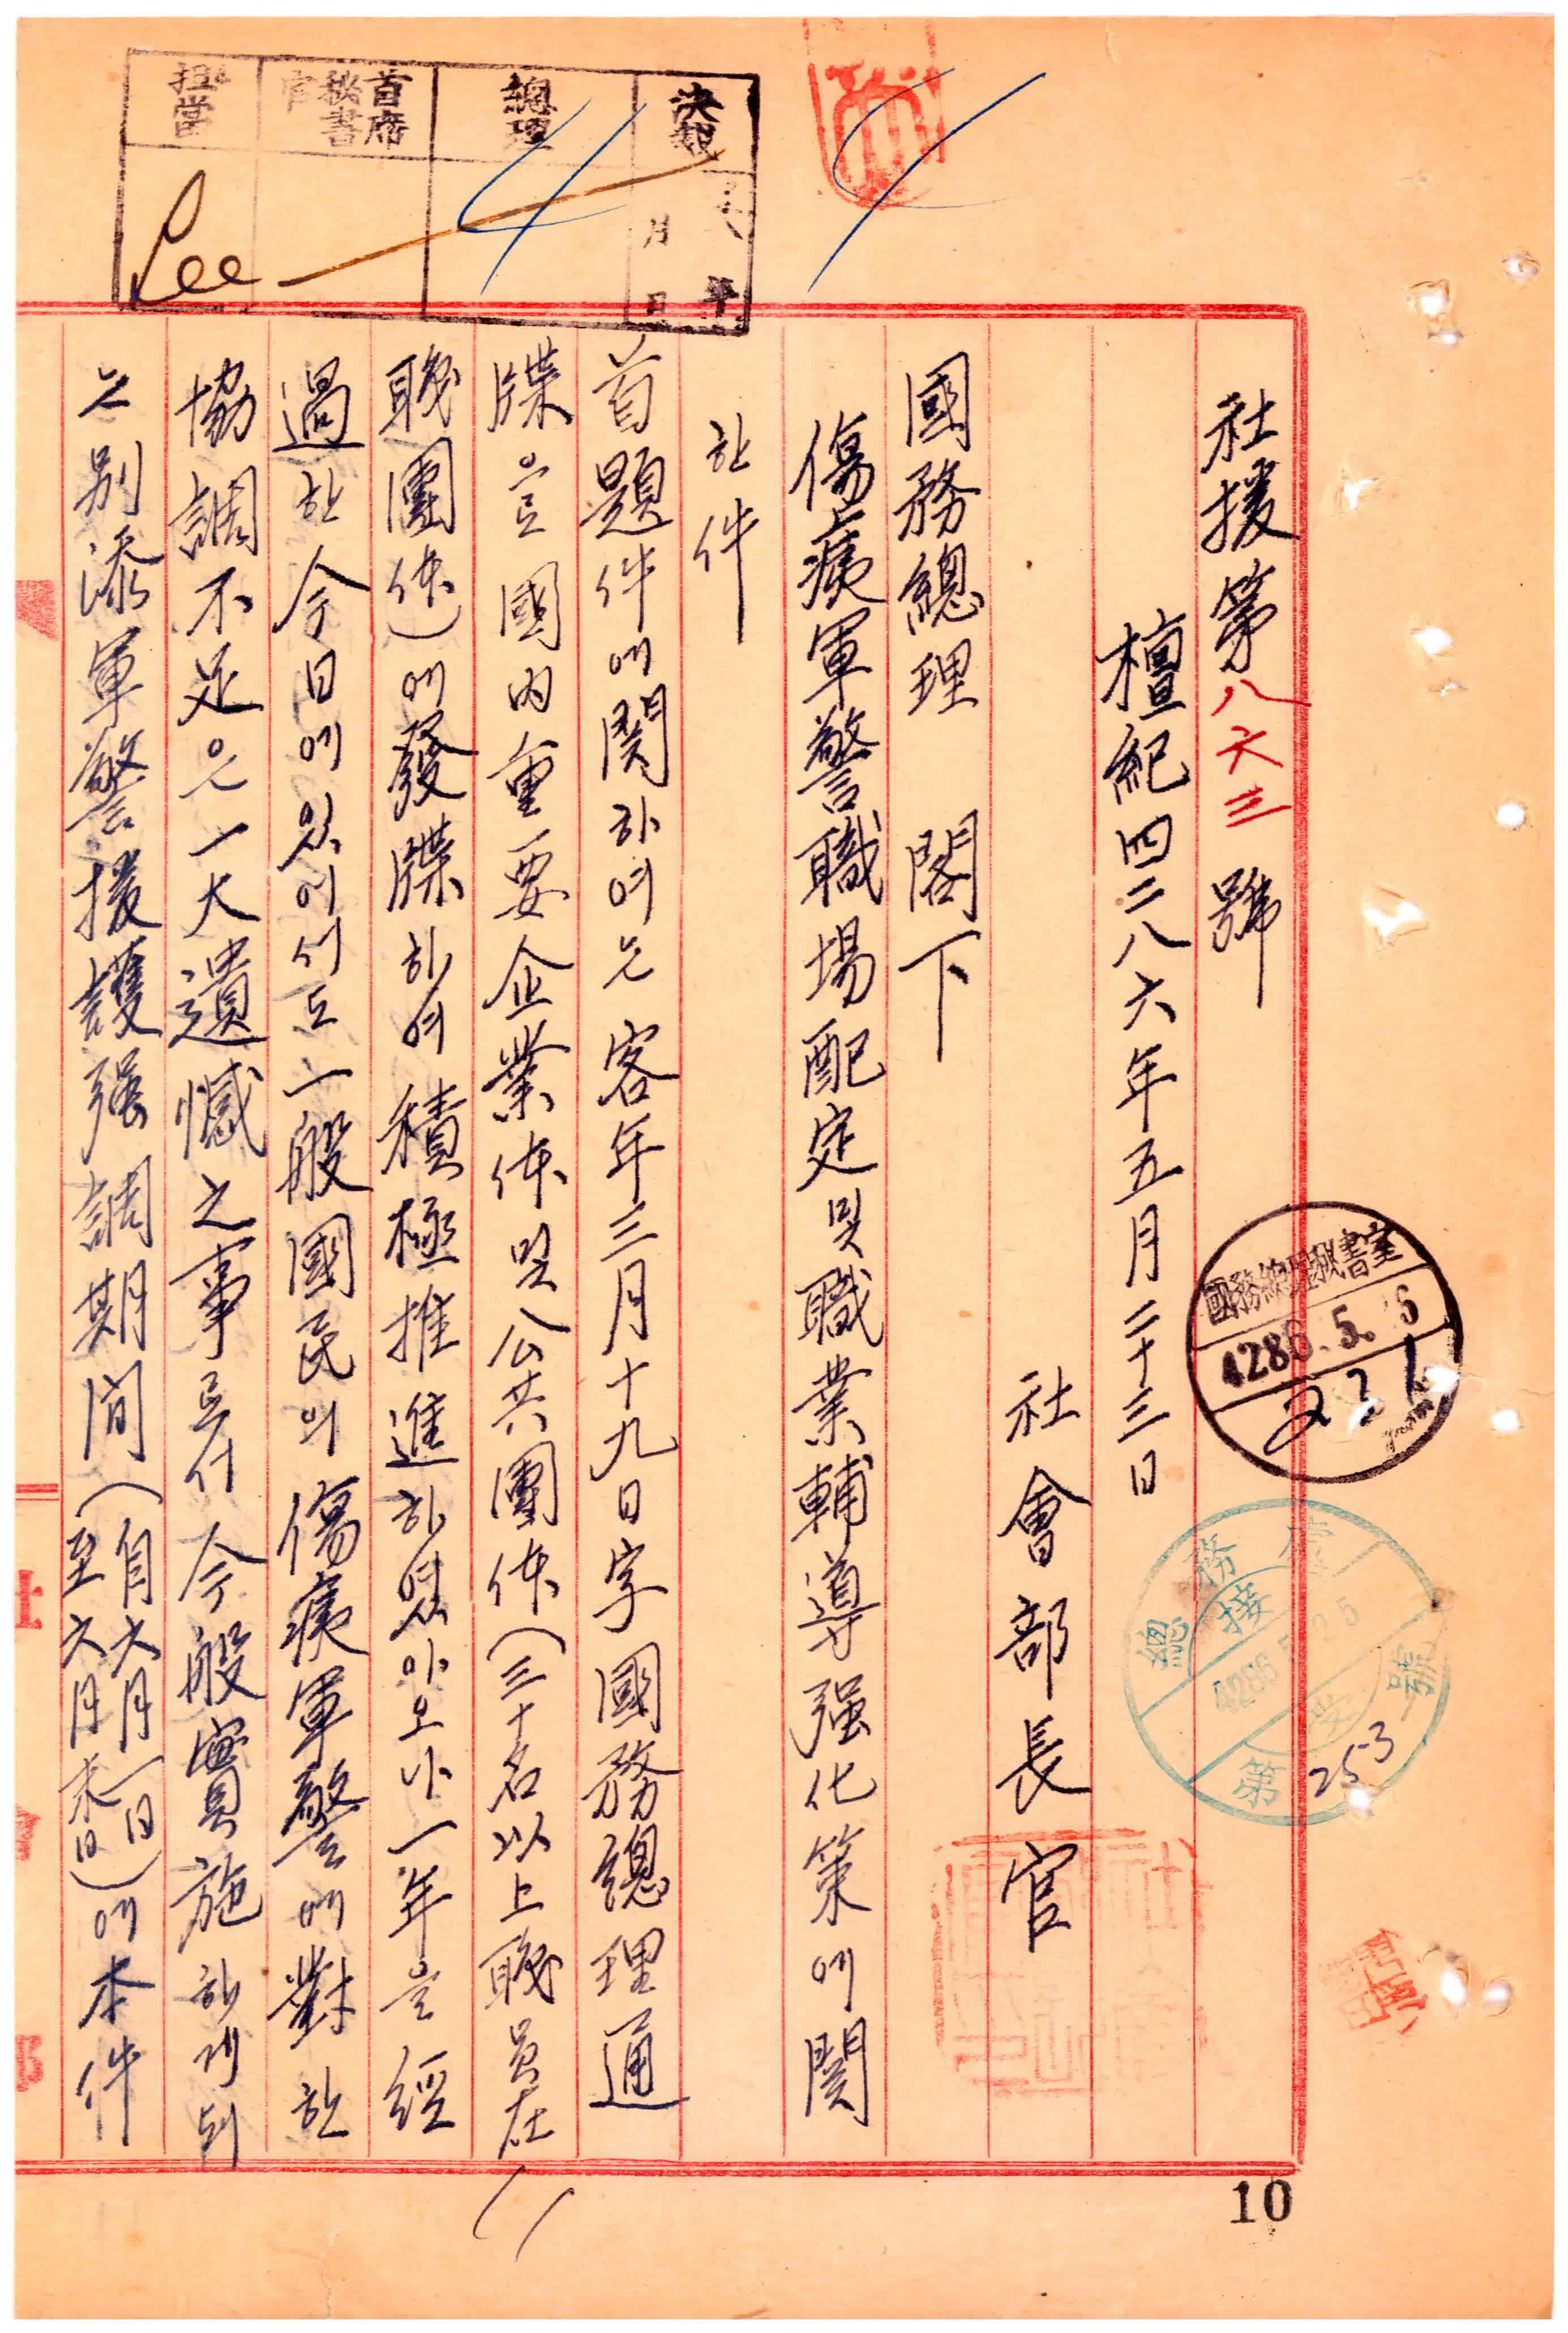 社援第八六三號
檀紀四二八六年五月二十三日
社會部長官
國務總理 閣下
傷痍軍警職場配定및職業輔導强化策에関
한件
首題件에関하여는客年三月十九日字國務總理通
牒으로國內重要企業体및公共團体(三十名以上職員在
職團体)에發牒하여積極推進하였아오나一年을經
過한今日에있어서도一般國民의傷痍軍警에對한
協調不足은一大遺憾之事로서今般實施하게되
는別添軍警援護强調期間(自六月一日
至六月末日)에本件
決裁
年
月
日
總理
首席
秘書
官
Lee
國務總理秘書室
4286.5.
221
總務
接受
4286
第
253
號
10